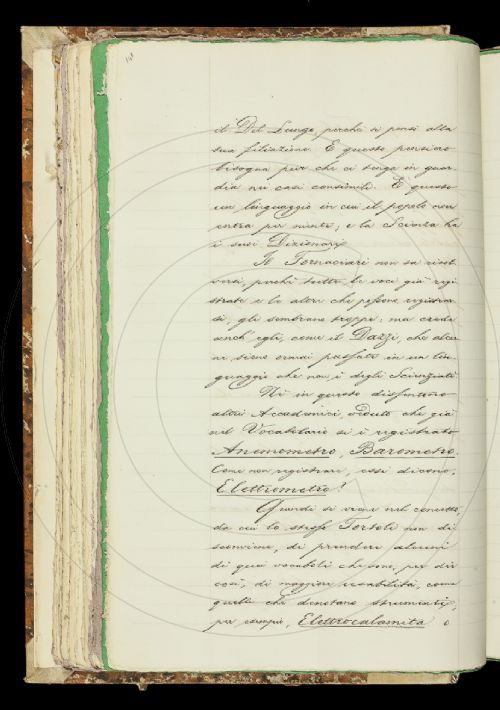 141
il Del Lungo, perchè si pensi alla
sua filiazione. E questo pensiero
bisogna pur che ci tenga in guar-
dia nei casi consimili. È questo
un linguaggio in cui il popolo non
entra per niente; e la Scienza ha
i suoi Dizionarj.
Il Fornaciari non sa risol-
versi, perchè tutte le voci già regi
strate e le altre che possono registrar-
si, gli sembrano troppe; ma crede
anch'egli, come il Dazzi, che alcu-
ne siene ormai passate in un lin-
guaggio che non è degli Scienziati
Nè in questo dissentono
altri Accademici, veduto che già
nel Vocabolario si è registrato
Anemometro, Barometro.
Come non registrare, essi dicono,
Elettrometro?
Quindi si viene nel concetto,
da cui lo stesso Tortoli non di
sconviene, di prendere alcuni
di quei vocaboli che sono, per dir
così, di maggiore usabilità, come
quelli che denotano strumenti,
per esempio, Elettrocalamita o